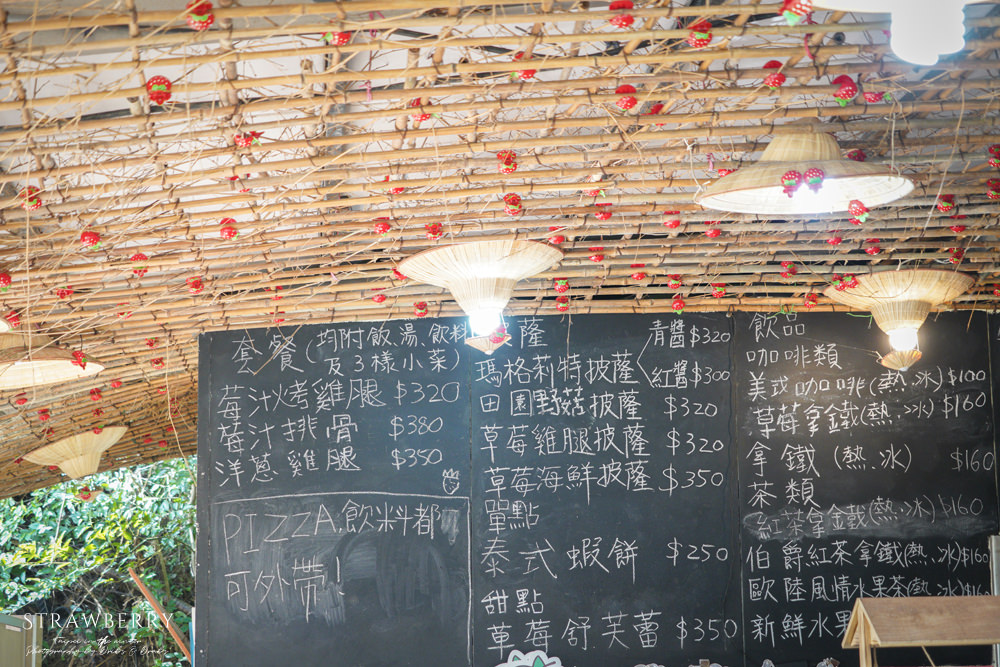 套餐(均附飯.湯.飲料
及3樣小菜)
莓汁烤雞腿 $320
莓汁排骨 $380
洋蔥雞腿 $350
PIZZA.飲料都
可外帶!
薩
瑪格莉特披薩
青醬$320
紅醬$300
田園野菇披薩 $320
草莓雞腿披薩 $320
草莓海鮮披薩 $350
單點
泰式蝦餅 $250
甜點
草莓舒芙蕾 $350
飲品
咖啡類
美式咖啡(熱.冰)$100
草莓拿鐵(熱.冰)$160
拿鐵(熱.冰) $160
茶類
紅茶拿鐵(熱.冰)$160
伯爵紅茶拿鐵(熱.冰)$160
歐陸風情水果茶(熱.冰)
新鮮水果
STRAWBERRY